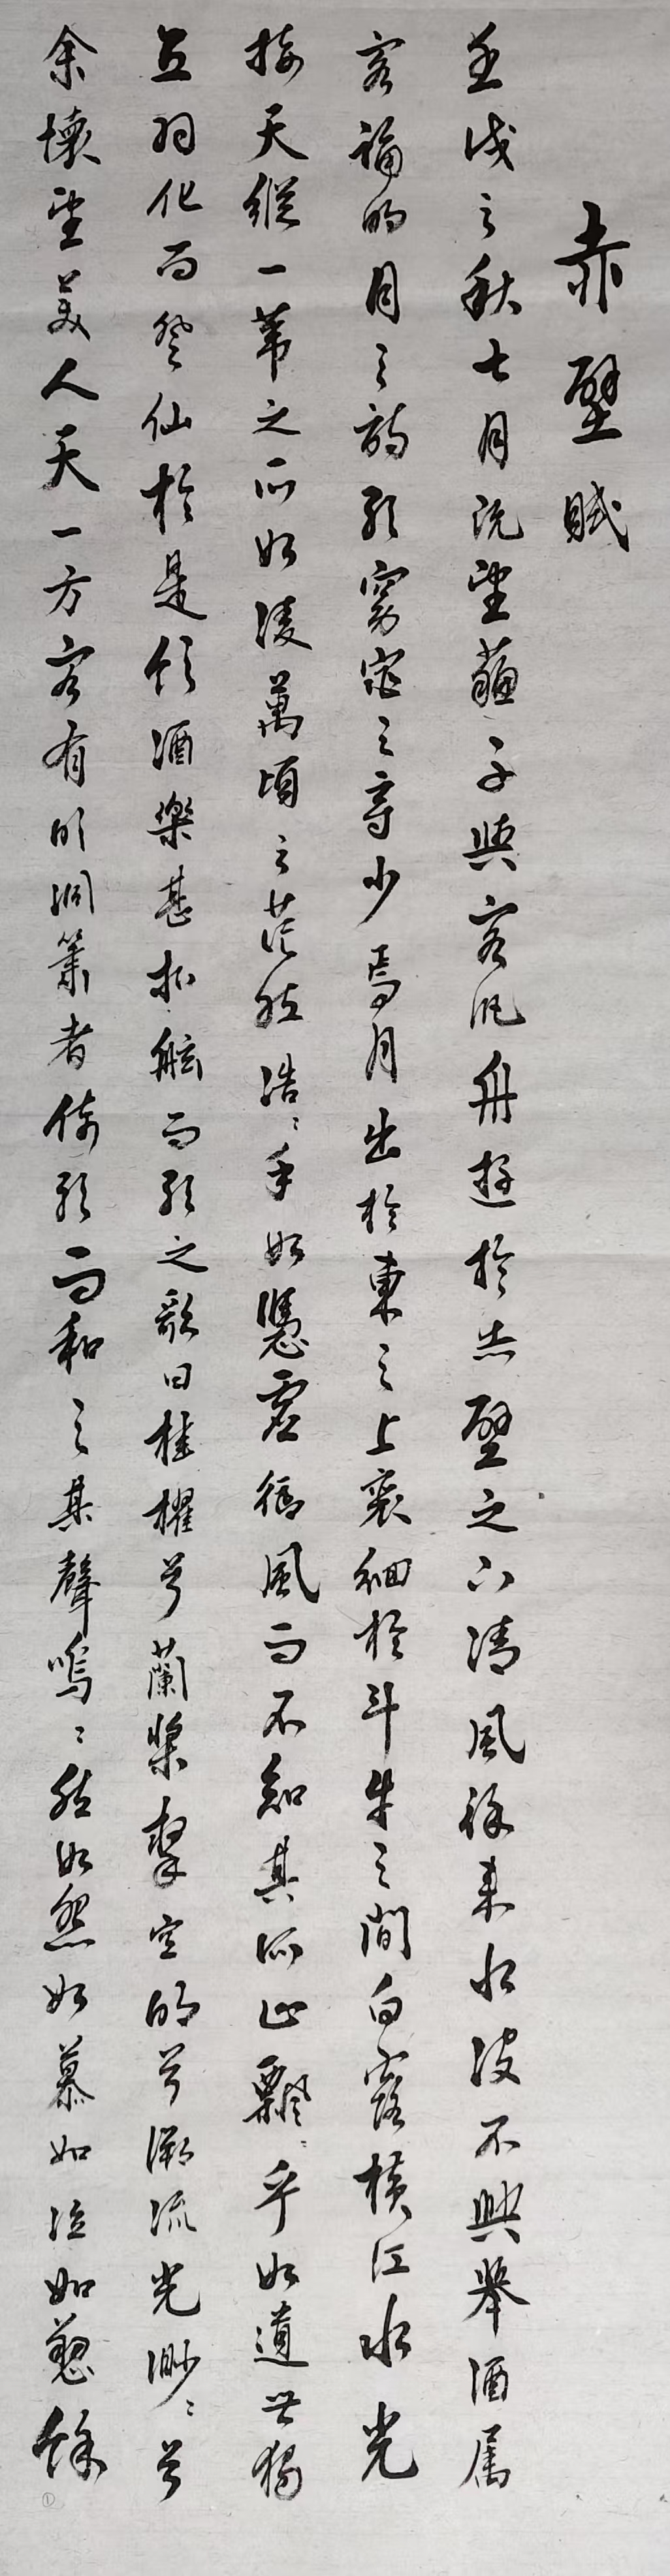 赤壁賦
壬戌之秋七月既望蘇子與客汎舟遊於赤壁之下清風徐來水波不興舉酒属
客誦明月之詩歌窈窕之章少焉月出於東之上裵佪於斗牛之間白露横江水光
接天縱一葦之所如凌萬頃之茫然浩〻乎如憑虛御風而不知其所止飄〻乎如遺世獨
立羽化而登仙於是飲酒樂甚扣舷而歌之歌曰桂櫂兮蘭槳擊空明兮溯流光渺〻兮
余懷望美人天一方客有吹洞簫者倚歌而和之其聲嗚〻然如怨如慕如泣如愬餘
①